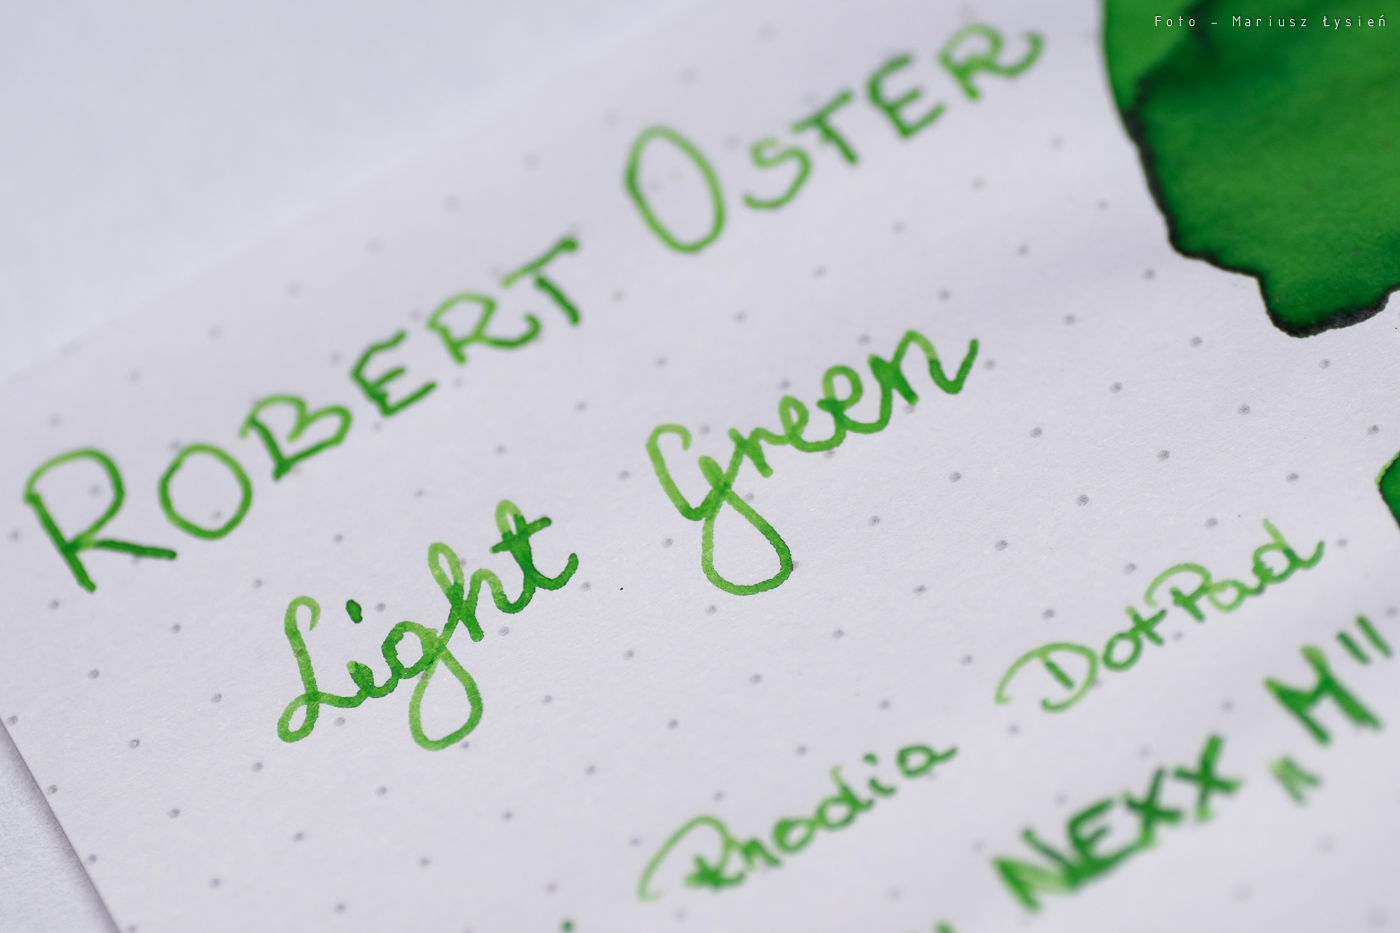 Foto - Mariusz Łysień
ROBERT OSTER
Light Green
Rhodia DotPad
NEXX „M"